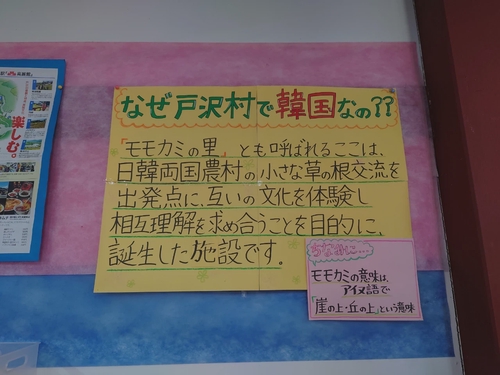 楽しむ。
なぜ戸沢村で韓国なの??
「モモカミの里」とも呼ばれるここは、
日韓両国農村の小さな草の根交流を
出発点に、互いの文化を体験し
相互理解を求め合うことを目的に、
誕生した施設です。
ちなみに....
モモカミの意味は、
アイヌ語で
「崖の上・丘の上」という意味